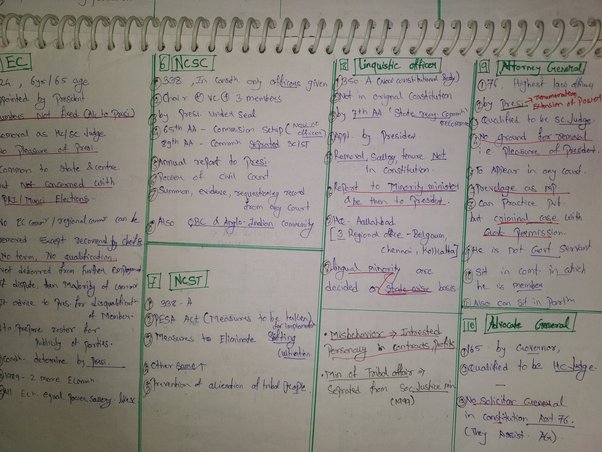 EC
324, 6yrs/65 age
Appointed by President
Numbers Not fixed (ALL to Presi)
Removal as HC/SC Judge
No Pleasure of Presi.
Common to State & centre.
But Not concerned with
PRI/Munci Elections
No EC count/regional count can be
removed except recommend by chief
No term, No qualification
Not debarred from further employment
If dispute, then Majority of commi
If advice to Pres. for disqualification
of Member.
To prepare roster for
Publicity of parties.
determine by Presi.
1989 - 2 more EComm
All ECs equal power, salary.
6 NCSC
① 338, In Consth only officers given
② Chair + VC + 3 members
③ by Presi. Under Seal
④ 65th AA - Comission setup (Inst. of officer)
89th AA - Comm Seprated SC|ST
⑤ Annual report to Presi
⑥ Power of civil court
⑦ Summon, evidence, requestioning record
from any Court
⑧ Also OBC & Anglo-Indian community
7 NCST
① 338-A
② PESA Act (Measures to be taken for implement
③ Measures to Eliminate Shifting
Cultivation
④ Other same ↑
⑤ Prevention of alienation of tribal people.
8 Linguistic officer
① 350 A (Not constitutional Body)
② Not in original Constitution
③ by 7th AA "State reorg. Comm"
recommend
④ Appt. by President
⑤ Removal, Sallary, tenure Not
in Constitution
⑥ Report to Minority minister
& he then to President.
⑦ HQ - Allahbad
[3 Regional office - Belgaum,
Chennai, Kolkatta]
⑧ Lingual minority are
decided on State wise basis
• Misbehavior → Intrested
Personally in contracts, profits
• Min of Tribal affair →
Seprated from Soc. Justice min
(1999)
9 Attorney General
① 76, Highest law officer
② by Presi → renumeration,
Extension of Power
③ Qualified to be SC Judge.
④ No ground for removal
i.e pleasure of President.
⑤ To Appear in any court.
⑥ Previlage as MP
⑦ Can Practice Pvt.
but criminal case with
Govt. Permission.
⑧ He is not Govt Servant
⑨ Sit in comt. in which
he is member
⑩ Also can sit in Parlim
10 Advocate General
① 165 - by Governor,
② Qualified to be HC Judge.
③ No solicitor General
in constitution Art 76.
(They Assist. AG)